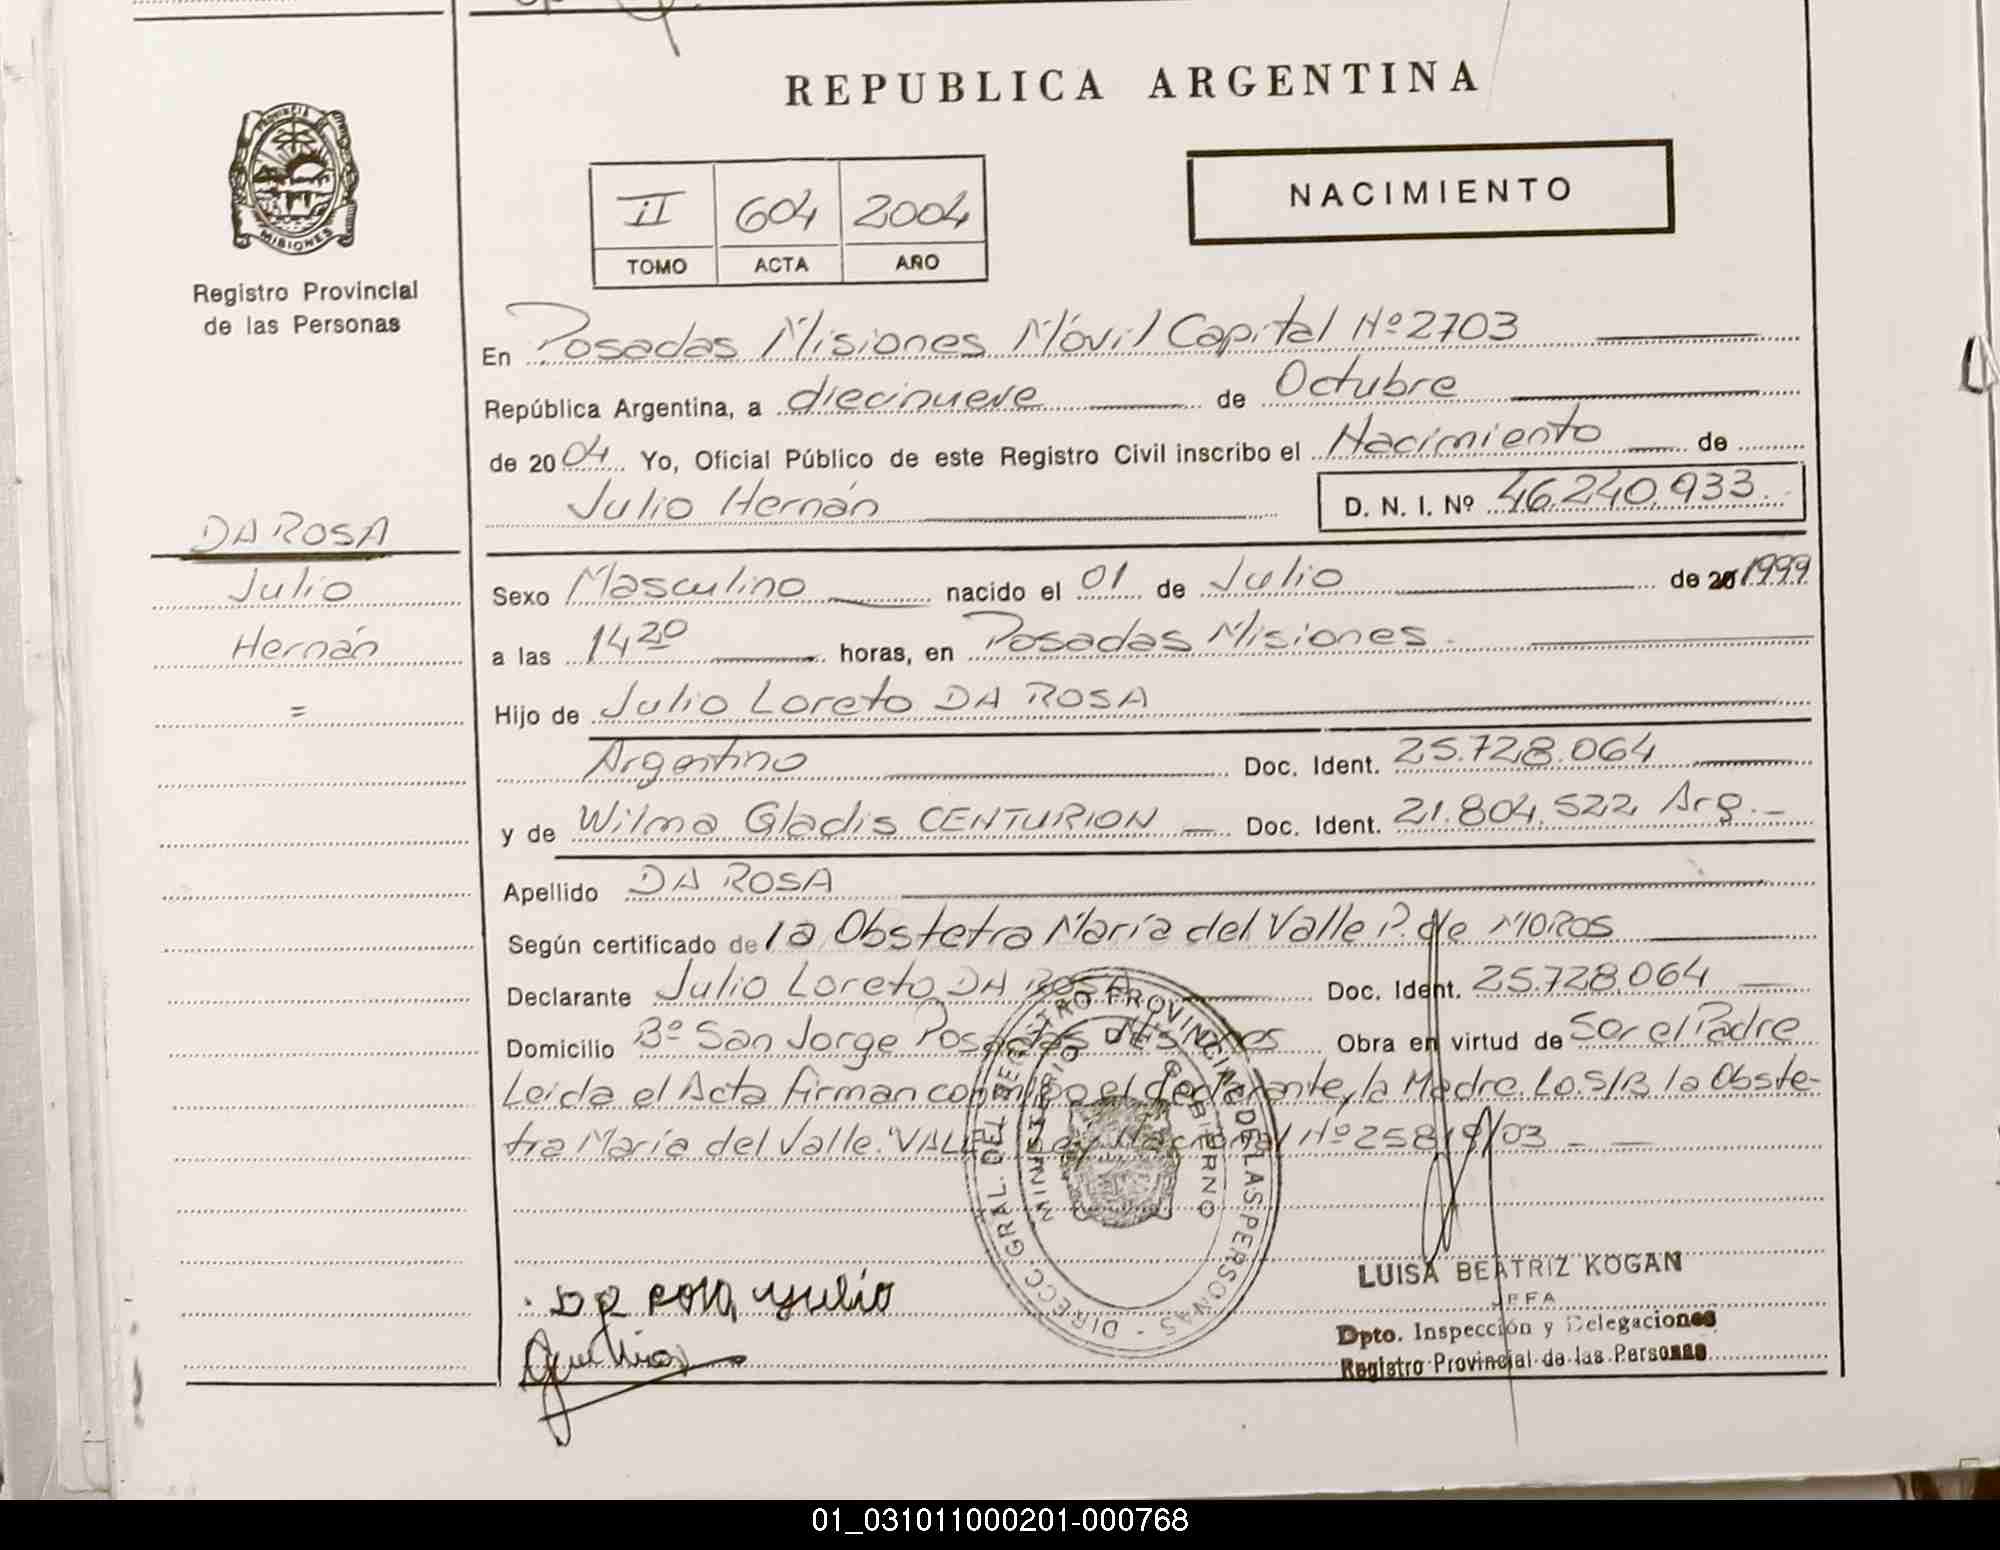 REPUBLICA ARGENTINA
PROVINCIA DE
MISIONES
Registro Provincial
de las Personas
NACIMIENTO
II 604 2004
TOMO ACTA AÑO
En Posadas Misiones Móvil Capital Nº 2703
República Argentina, a diecinueve de Octubre
de 2004 Yo, Oficial Público de este Registro Civil inscribo el Nacimiento de
Julio Hernán D. N. I. Nº 46.240.933.
DA ROSA
Julio
Hernán
=
Sexo Masculino nacido el 01 de Julio de 20 1999
a las 14 20 horas, en Posadas Misiones.
Hijo de Julio Loreto DA ROSA
Argentino Doc. Ident. 25.728.064
y de Wilma Gladis CENTURION Doc. Ident. 21.804.522 Arg.
Apellido DA ROSA
Según certificado de la Obstetra María del Valle P. de MOROS
Declarante Julio Loreto DA ROSA Doc. Ident. 25.728.064
Domicilio Bº San Jorge Posadas Misiones Obra en virtud de Ser el Padre
Leida el Acta firman conmigo el declarante, la Madre. Lo.S/B la Obste-
tra María del Valle. "VALE" Ley Nacional Nº 25819/03
DIRECC. GRAL. DEL REGISTRO PROVINCIAL DE LAS PERSONAS -
MINISTERIO DE GOBIERNO
Da Rosa Julio
LUISA BEATRIZ KOGAN
JEFA
Dpto. Inspección y Delegaciones
Registro Provincial de las Personas
01_031011000201-000768